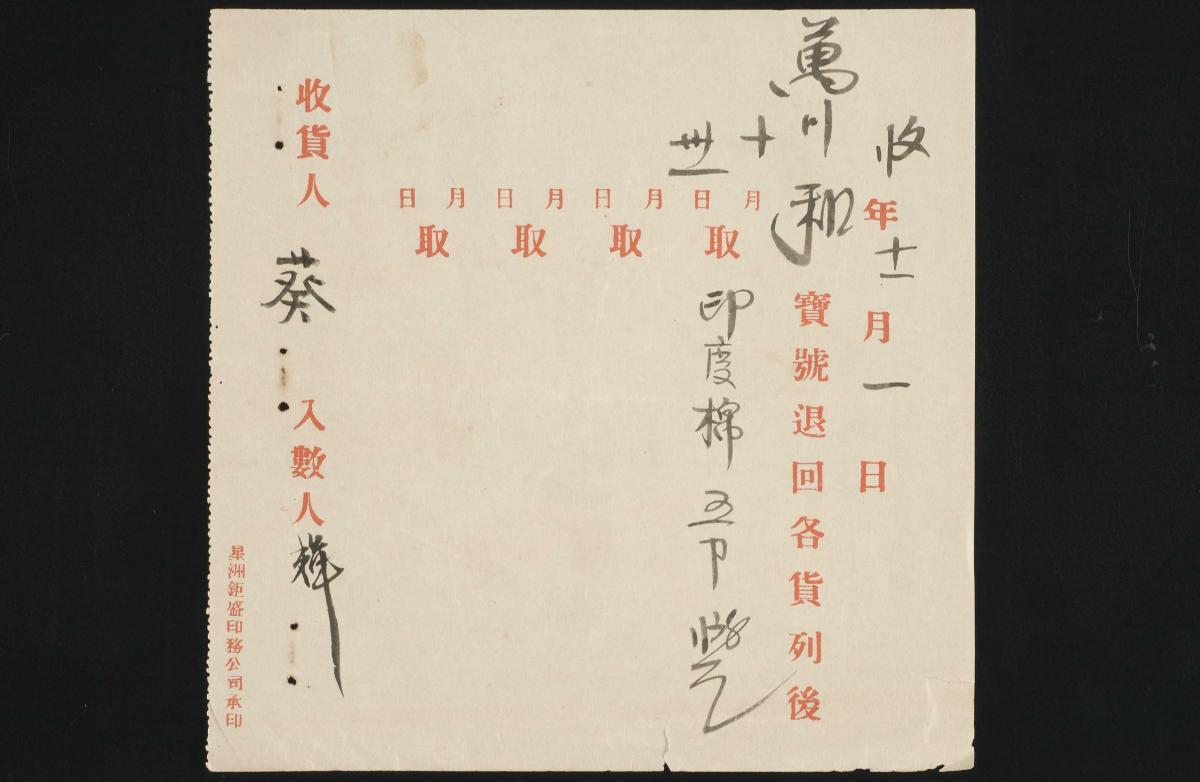 收 年 十一 月 一 日
萬川和 寶號退回各貨列後
十 月 卅一 日 取 印度棉 五
月 日 取
月 日 取
月 日 取
收貨人 葵 入數人 輝
星洲鉅盛印務公司承印